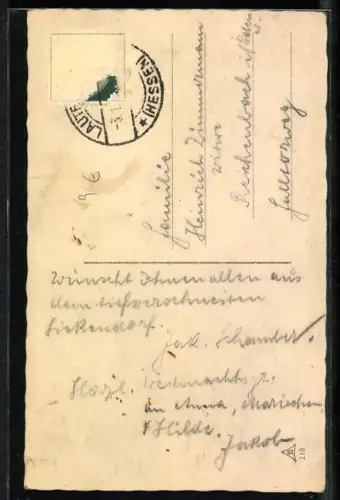 LAUTE
(HESSEN)
-3.1.
Familie
Heinrich Zimmermann
Witwe
Reichenbach i/
Wünscht Ihnen allen aus
dem tiefverschneiten
Sickendorf.
Jak. Schander.
Herzl. Weihnachtsgr.
an Anna, Mariechen
& Hilde. Jakob
118